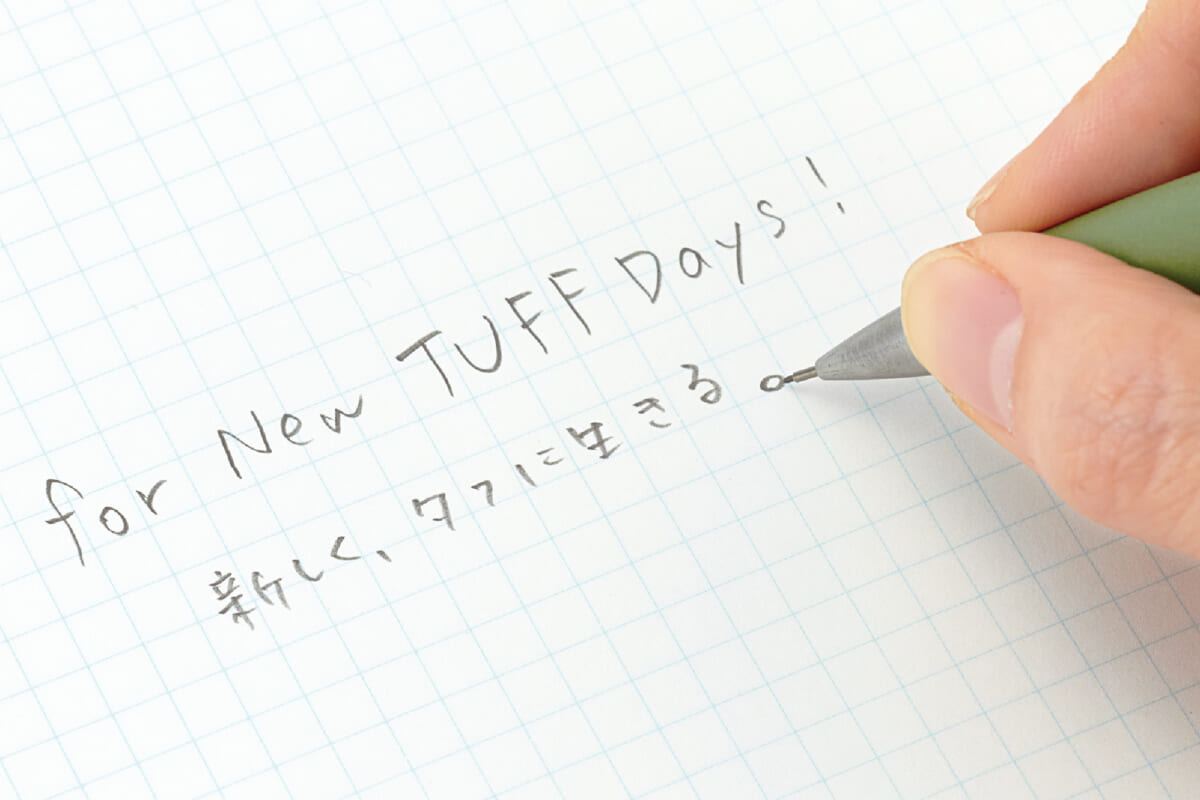 for New TUFF Days!
新しく、タフに生きる。